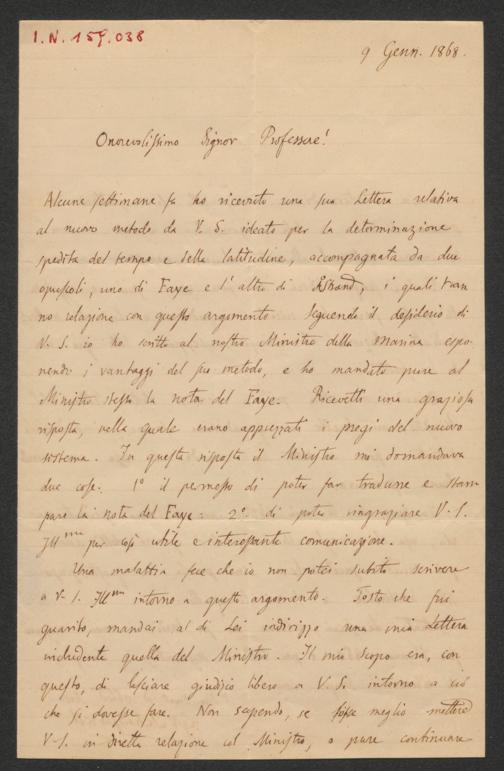 I.N. 159.038
9 Genn. 1868.
Onorevolissimo Signor Professore!
Alcune settimane fa ho ricevuto una sua Lettera relativa
al nuovo metodo da V. S. ideato per la determinazione
spedita del tempo e della latitudine, accompagnata da due
opuscoli, uno di Faye e l'altro di Astrand, i quali han
no relazione con questo argomento. Seguendo il desiderio di
V. S. io ho scritto al nostro Ministro della Marina espo-
nendo i vantaggi del suo metodo, e ho mandato pure al
Ministro stesso la nota del Faye. Ricevetti una graziosa
risposta, nella quale erano apprezzati i pregi del nuovo
sistema. In questa risposta il Ministro mi domandava
due cose. 1° il permesso di poter far tradurre e stam
pare la nota del Faye: 2°. di poter ringraziare V. S.
Ill.ma per così utile e interessante comunicazione.
Una malattia fece che io non potei subito scrivere
a V. S. Ill.ma intorno a questo argomento. Tosto che fui
guarito, mandai al di Lei indirizzo una mia Lettera
includente quella del Ministro. Il mio scopo era, con
questo, di lasciare giudizio libero a V. S. intorno a ciò
che si dovesse fare. Non sapendo, se fosse meglio mettere
V. S. in diretta relazione col Ministro, o pure continuare